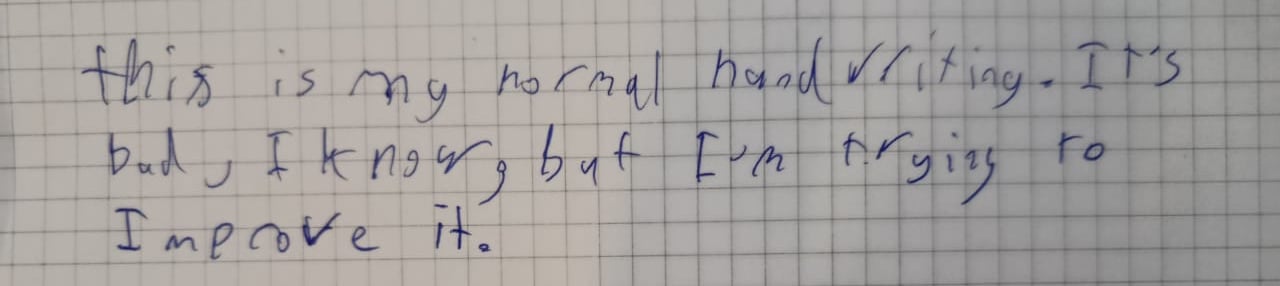 this is my normal handwriting. It's
bad, I know, but I'm trying to
Improve it.